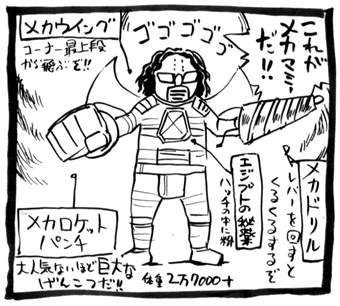 これが
メカマミー
だ!!
ゴゴゴゴゴ
メカウイング
コーナー最上段
から飛ぶぞ!!
メカドリル
レバーを回すと
くるくるするぞ
エジプトの秘薬
ハッチの中に粉
メカロケット
パンチ
大人気ないほど巨大な
げんこつだ!!
体重2万7000t